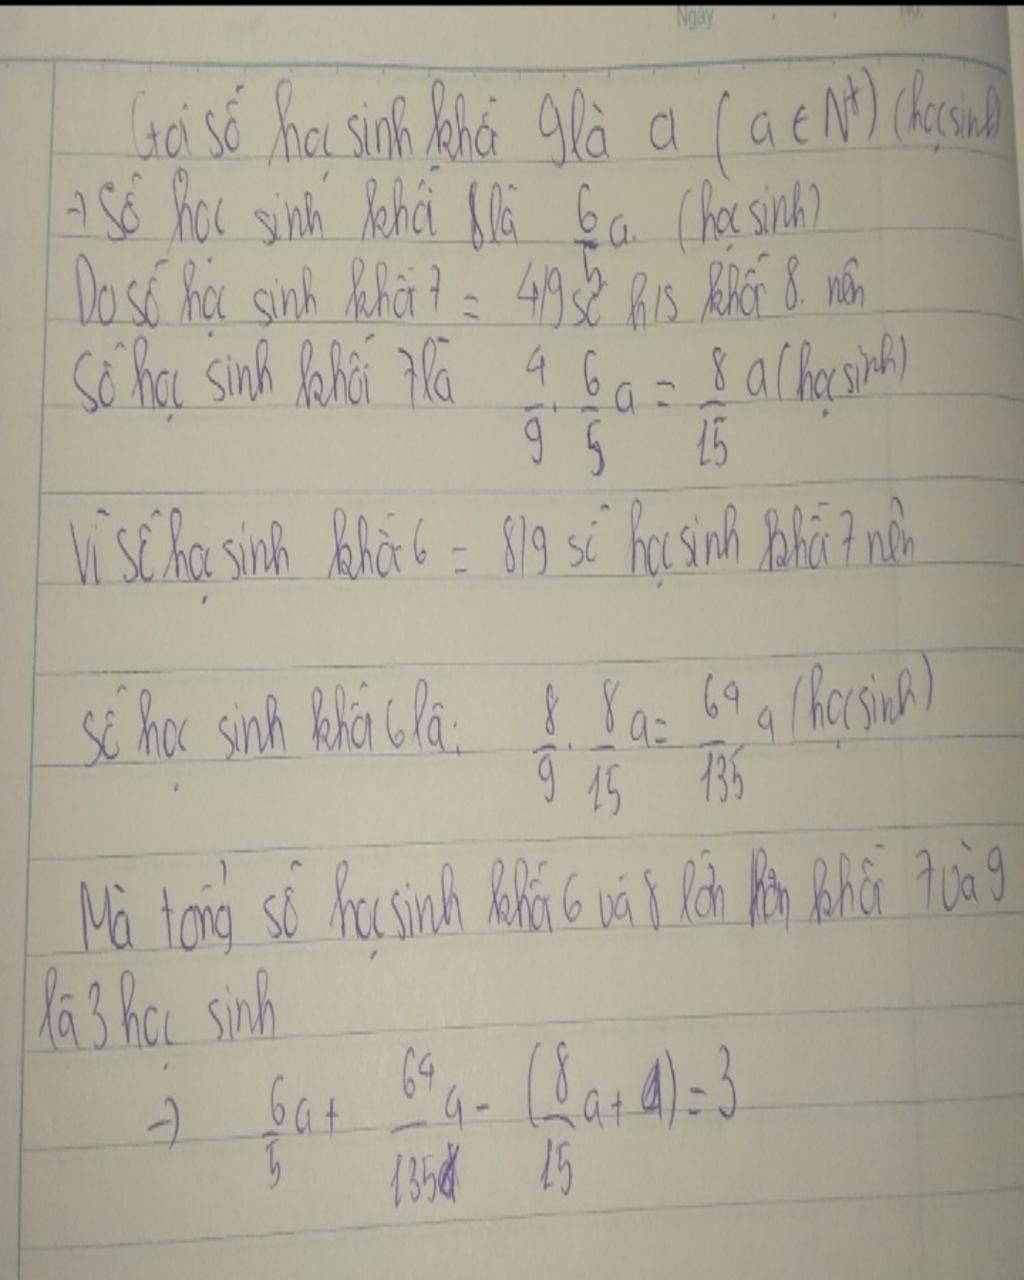 Ngày
No.
Gọi số học sinh khối 9 là a (a ∈ N*) (học sinh)
→ Số học sinh khối 8 là 6/5 a. (học sinh)
Do số học sinh khối 7 = 4/9 số h/s khối 8. nên
Số học sinh khối 7 là 4/9 . 6/5 a = 8/15 a (học sinh)
Vì số học sinh khối 6 = 8/9 số học sinh khối 7 nên
Số học sinh khối 6 là: 8/9 . 8/15 a = 64/135 a (học sinh)
Mà tổng số học sinh khối 6 và 8 lớn hơn khối 7 và 9
là 3 học sinh
→ 6/5 a + 64/135 a - (8/15 a + a) = 3